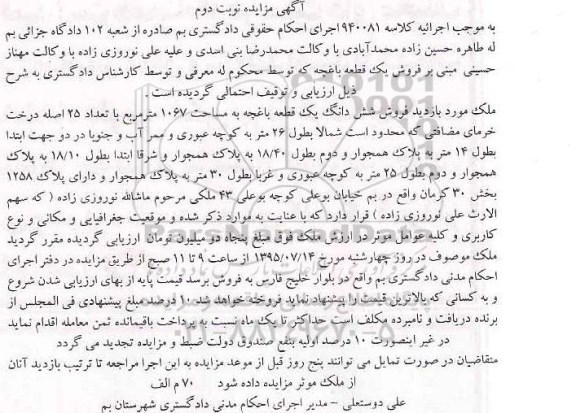 آگهی مزایده نوبت دوم
به موجب اجرائیه کلاسه ۹۴۰۰۸۱ اجرای احکام حقوقی دادگستری بم صادره از شعبه ۱۰۲ دادگاه جزائی بم
له طاهره حسین زاده محمدآبادی با وکالت محمدرضا بنی اسدی و علیه علی نوروزی زاده با وکالت مهناز
حسینی مبنی بر فروش یک قطعه باغچه که توسط محکوم له معرفی و توسط کارشناس دادگستری به شرح
ذیل ارزیابی و توقیف احتمالی گردیده است .
ملک مورد بازدید فروش شش دانگ یک قطعه باغچه به مساحت ۱۰۶۷ مترمربع با تعداد ۲۵ اصله درخت
خرمای مضافتی که محدود است شمالا بطول ۲۶ متر به کوچه عبوری و ممر آب و جنوبا در دو جهت ابتدا
بطول ۱۴ متر به پلاک همجوار و دوم بطول ۱۸/۴۰ به پلاک همجوار و شرقا ابتدا بطول ۱۸/۱۰ به پلاک
همجوار و دوم بطول ۲۵ متر به کوچه عبوری و غربا بطول ۳۰ متر به پلاک همجوار و دارای پلاک ۱۲۵۸
بخش ۳۰ کرمان واقع در بم خیابان بوعلی کوچه بوعلی ۴۳ ملکی مرحوم ماشالله نوروزی زاده ( که سهم
الارث علی نوروزی زاده ) قرار دارد که با عنایت به موارد ذکر شده و موقعیت جغرافیایی و مکانی و نوع
کاربری و کلیه عوامل موثر در ارزش ملک فوق مبلغ پنجاه دو میلیون تومان ارزیابی گردیده مقرر گردید
ملک موصوف در روز چهارشنبه مورخ ۱۳۹۵/۰۷/۱۴ از ساعت ۹ تا ۱۱ صبح از طریق مزایده در دفتر اجرای
احکام مدنی دادگستری بم واقع در بلوار خلیج فارس به فروش برسد قیمت پایه از بهای ارزیابی شدن شروع
و به کسانی که بالاترین قیمت را پیشنهاد نماید فروخته خواهد شد. ۱۰ درصد مبلغ پیشنهادی فی المجلس از
برنده دریافت و نامبرده مکلف است حداکثر تا یک ماه نسبت به پرداخت باقیمانده ثمن معامله اقدام نماید
در غیر اینصورت ۱۰ درصد اولیه بنفع صندوق دولت ضبط و مزایده تجدید می گردد
متقاضیان در صورت تمایل می توانند پنج روز قبل از موعد مزایده به این اجرا مراجعه تا ترتیب بازدید آنان
از ملک موثر مزایده داده شود ۷۰ م الف
علی دوستعلی - مدیر اجرای احکام مدنی دادگستری شهرستان بم
ParsNamadData
۰۲۱-۸۸۳۴۹۶۷۰-۵